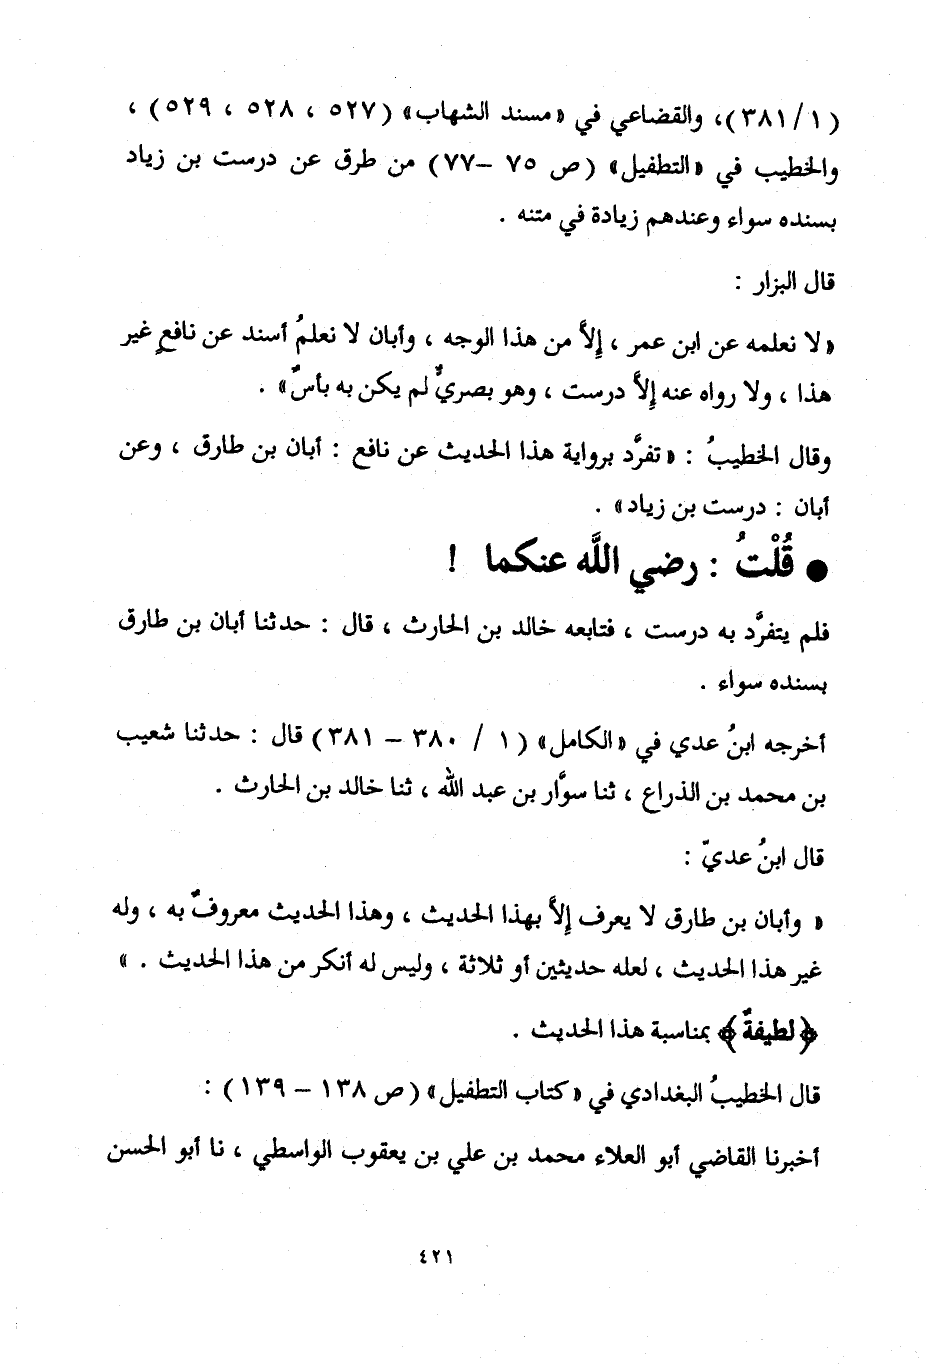 (١/٣٨١)، والقضاعي في «مسند الشهاب» (٥٢٧ ، ٥٢٨ ، ٥٢٩) ،
والخطيب في «التطفيل» (ص ٧٥ -٧٧) من طرق عن درست بن زياد
بسنده سواء وعندهم زيادة في متنه .
قال البزار :
« لا نعلمه عن ابن عمر ، إلاَّ من هذا الوجه ، وأبان لا نعلمُ أسند عن نافعٍ غير
هذا ، ولا رواه عنه إلاَّ درست ، وهو بصريٌّ لم يكن به بأسٌ» .
وقال الخطيبُ : « تفرَّد برواية هذا الحديث عن نافع : أبان بن طارق ، وعن
أبان : درست بن زياد» .
● قُلْتُ : رضي اللَّه عنكما !
فلم يتفرَّد به درست ، فتابعه خالد بن الحارث ، قال : حدثنا أبان بن طارق
بسنده سواء .
أخرجه ابنُ عدي في «الكامل» (١ / ٣٨٠ - ٣٨١) قال : حدثنا شعيب
بن محمد بن الذراع ، ثنا سوَّار بن عبد الله ، ثنا خالد بن الحارث .
قال ابنُ عديّ :
« وأبان بن طارق لا يعرف إلاَّ بهذا الحديث ، وهذا الحديث معروفٌ به ، وله
غير هذا الحديث ، لعله حديثين أو ثلاثة ، وليس له أنكر من هذا الحديث . »
﴿لطيفةٌ﴾ بمناسبة هذا الحديث .
قال الخطيبُ البغدادي في «كتاب التطفيل» (ص ١٣٨ - ١٣٩) :
أخبرنا القاضي أبو العلاء محمد بن علي بن يعقوب الواسطي ، نا أبو الحسن
٤٢١